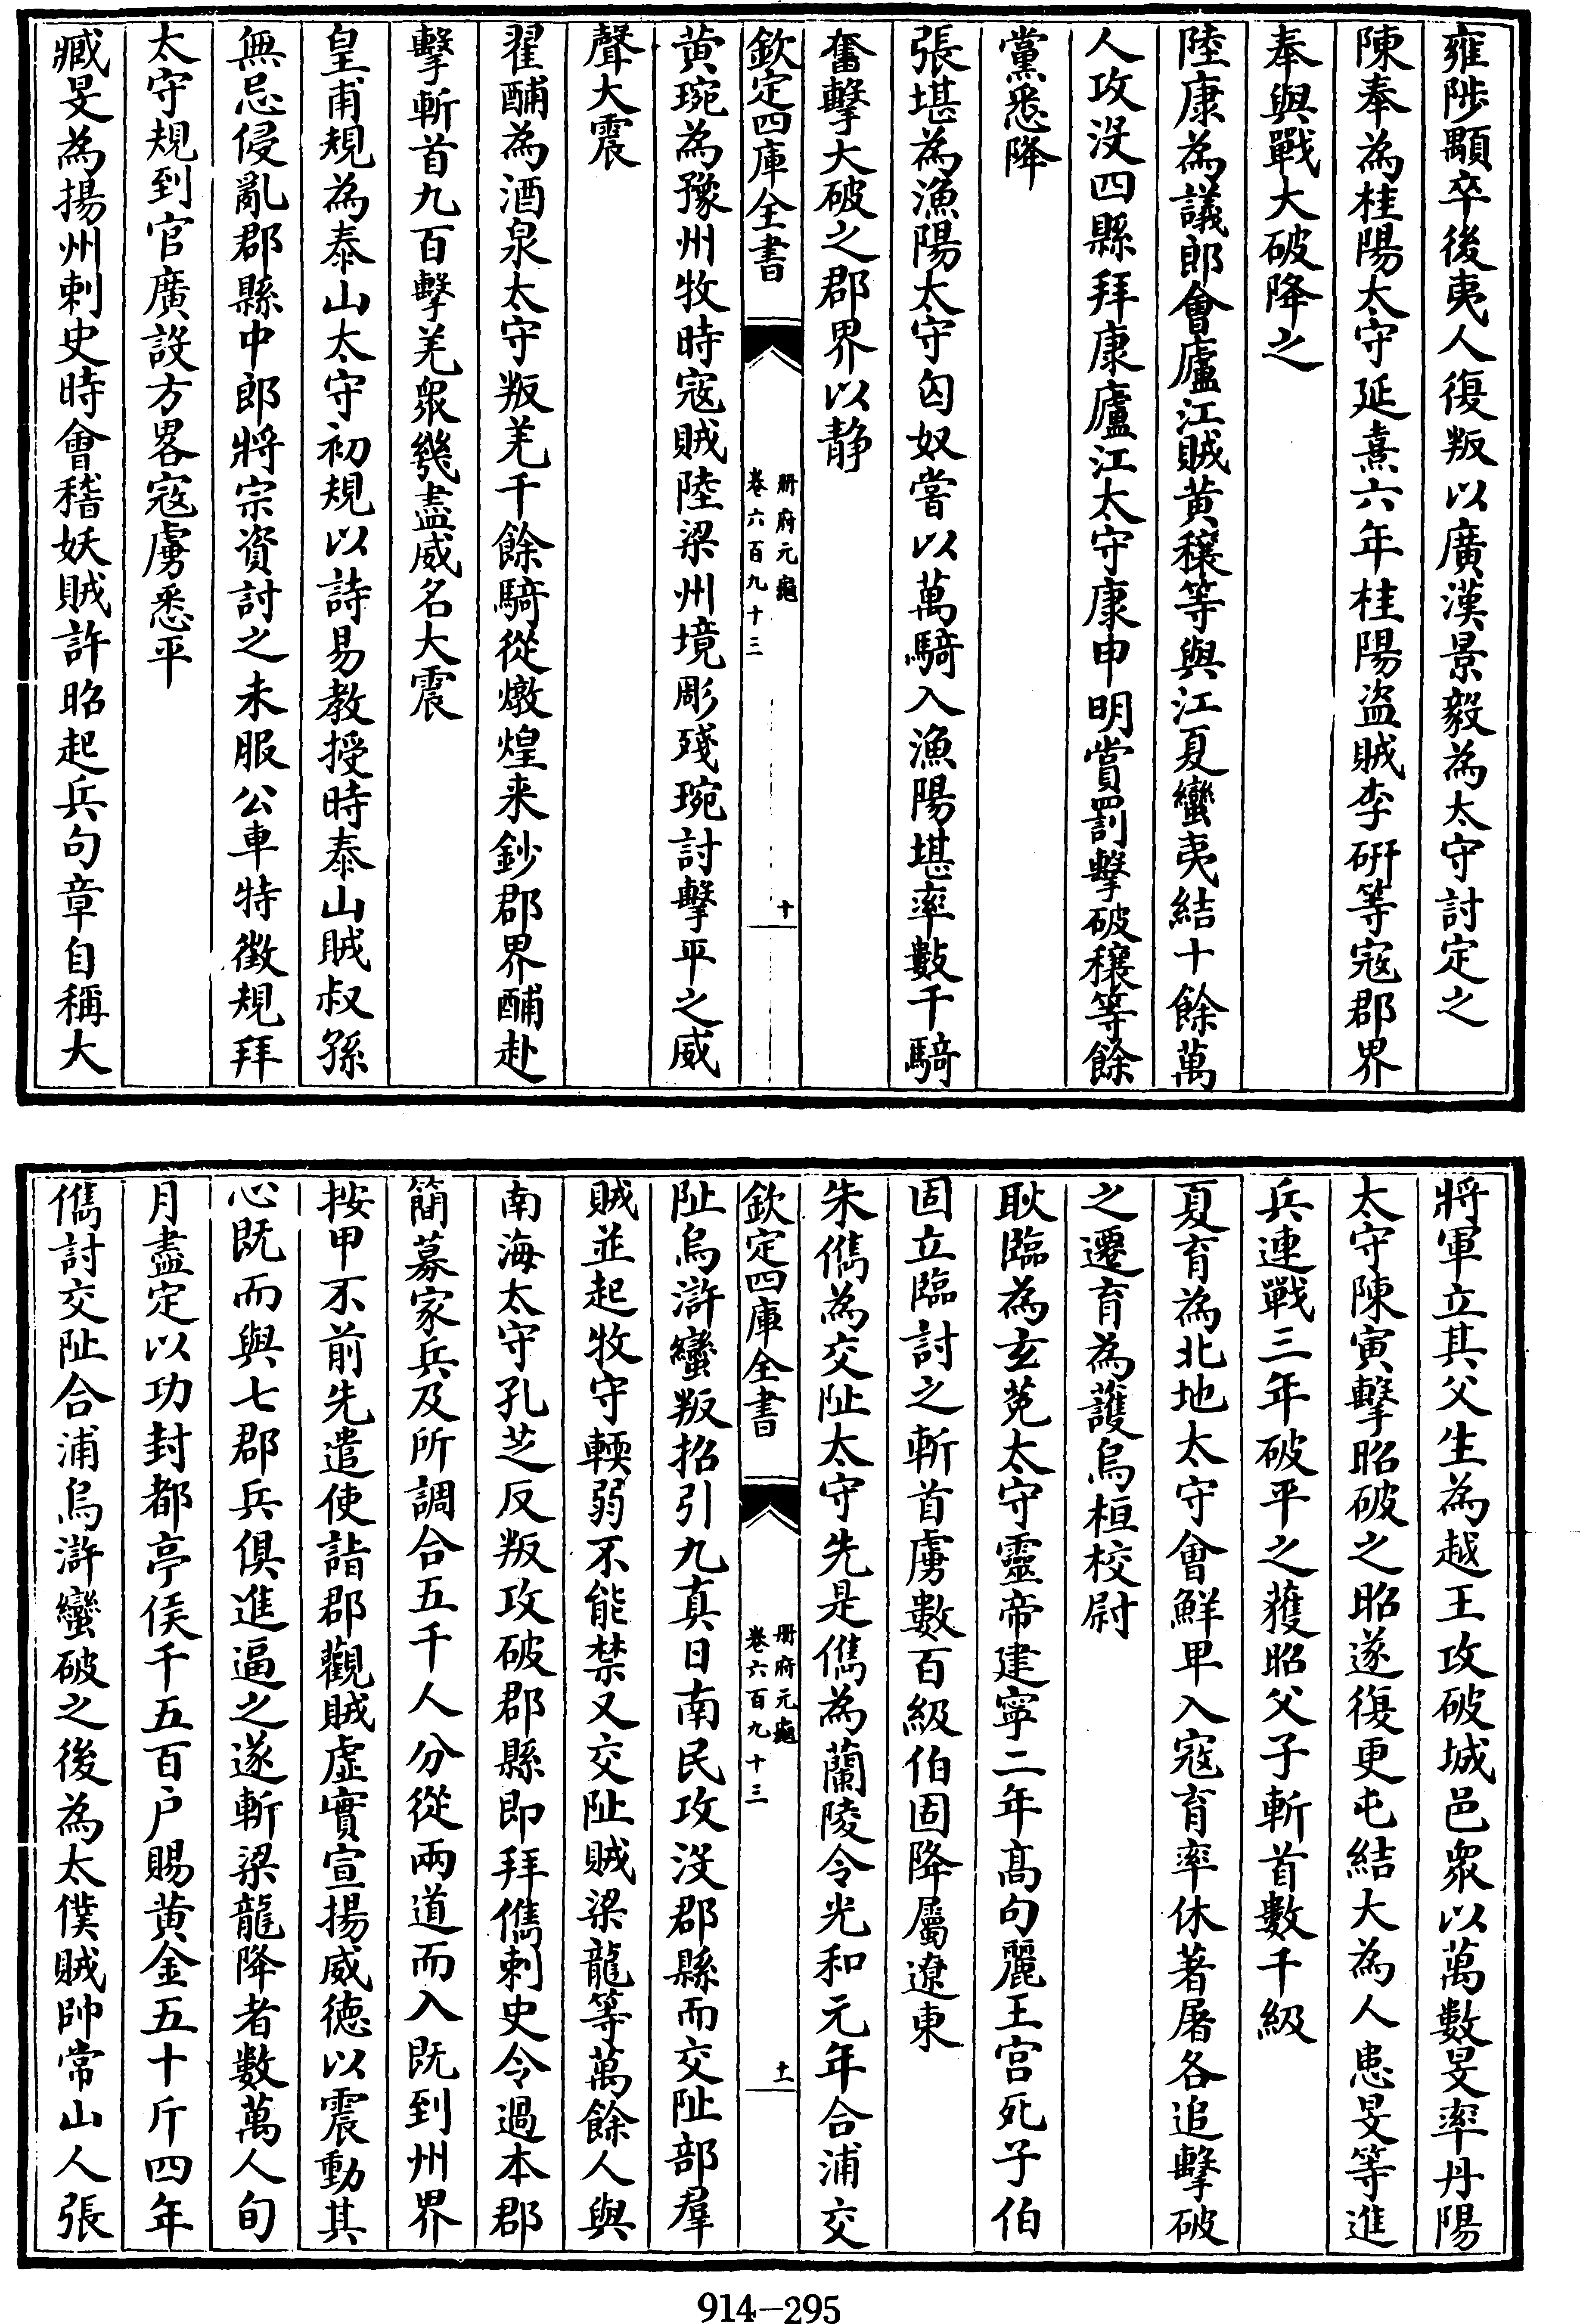 雍陟顒卒後夷人復叛以廣漢景毅為太守討定之
陳奉為桂陽太守延熹六年桂陽盗賊李研等寇郡界
奉與戰大破降之
陸康為議郎會廬江賊黄穰等與江夏蠻夷結十餘萬
人攻没四縣拜康廬江太守康申明賞罰擊破穰等餘
黨悉降
張堪為漁陽太守匈奴嘗以萬騎入漁陽堪率數千騎
奮擊大破之郡界以静
欽定四庫全書
册府元龜
卷六百九十三
十
黄琬為豫州牧時寇賊陸梁州境彫殘琬討擊平之威
聲大震
翟酺為酒泉太守叛羌千餘騎從燉煌来鈔郡界酺赴
擊斬首九百擊羌衆幾盡威名大震
皇甫規為泰山太守初規以詩易教授時泰山賊叔孫
無忌侵亂郡縣中郎將宗資討之未服公車特徵規拜
太守規到官廣設方畧寇虜悉平
臧旻為揚州刺史時會稽妖賊許昭起兵句章自稱大
將軍立其父生為越王攻破城邑衆以萬數旻率丹陽
太守陳寅擊昭破之昭遂復更屯結大為人患旻等進
兵連戰三年破平之獲昭父子斬首數千級
夏育為北地太守會鮮卑入寇育率休著屠各追擊破
之遷育為護烏桓校尉
耿臨為玄菟太守靈帝建寧二年髙句麗王宫死子伯
固立臨討之斬首虜數百級伯固降屬遼東
朱儁為交阯太守先是儁為蘭陵令光和元年合浦交
欽定四庫全書
册府元龜
卷六百九十三
十一
阯烏滸蠻叛招引九真日南民攻没郡縣而交阯部羣
賊並起牧守輭弱不能禁又交阯賊梁龍等萬餘人與
南海太守孔芝反叛攻破郡縣即拜儁刺史令過本郡
簡募家兵及所調合五千人分從兩道而入既到州界
按甲不前先遣使詣郡觀賊虚實宣揚威徳以震動其
心既而與七郡兵俱進逼之遂斬梁龍降者數萬人旬
月盡定以功封都亭侯千五百户賜黄金五十斤四年
儁討交阯合浦烏滸蠻破之後為太僕賊帥常山人張
914-295